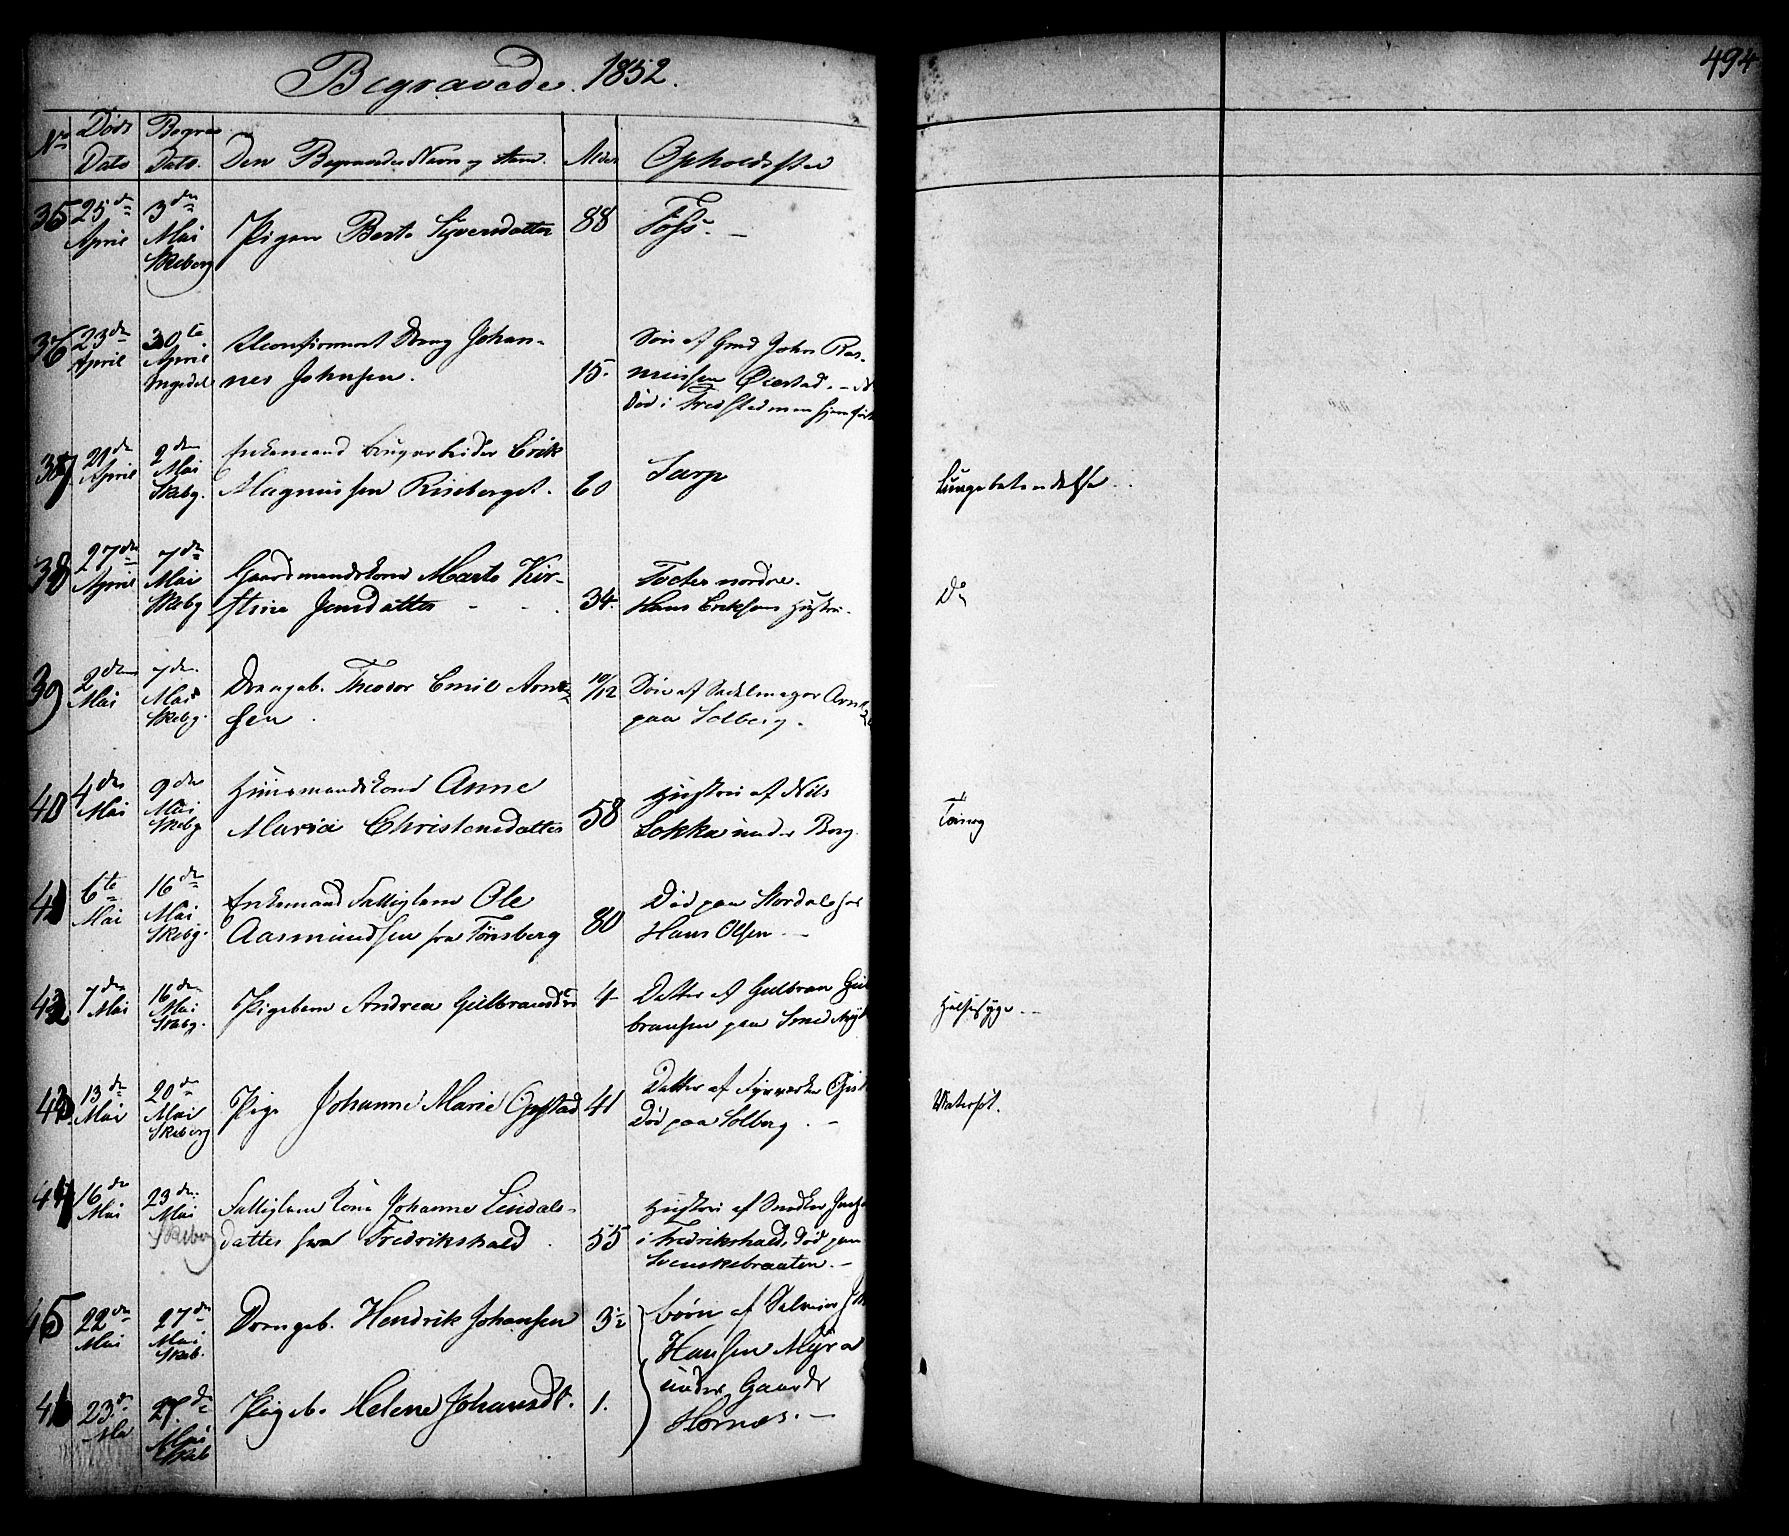 494
Begravede. 1852.
No Døds Dato Begrav Dato. Den Begravedes Navn og Stand. Alder Opholdssted
35 25de April 3die Mai Skeberg Pigen Berte Syversdatter 88 Foss. —
36 23de April 30te April Ingedal Uconfirmeret Dreng Johan-
nes Johnsen. 15. Søn af Gmd John Ras-
mussen Øiestad. —
Død i Fredsted men hjemført
37 21de April 2den Mai Skebg. Enkemand Brugarbeider Erik
Magnussen Riseberget. 60 Sarp Lungebetændelse.
38 27de April 7de Mai Skebg Gaardmandskone Marte Kir-
stine Jensdatter - - 34. Tveter nordre.
Hans Eriksens Hustru. Do
39 2den Mai 7de Mai Skebg. Drengeb. Theodor Emil Arnt-
sen. 10/12 Søn af Sadelmager Arntzen
paa Solberg.
40 4de Mai 9de Mai Skebg Huusmandskone Anne
Maria Christensdatter 58 Hustru af Nils
Løkka under Borg. Tæring
41 6te Mai 16de Mai Skebg. Enkemand Fattiglem Ole
Aasmundsen fra Tønsberg 80 Død paa Stordal hos
Hans Olsen. —
42 7de Mai 16de Mai Skebg. Pigebarn Andrea Gulbrandsdr 4 Datter af Gulbran Gul
bransen paa Halssyge. —
43 13de Mai 20de Mai Skeberg Pige Johanne Marie Opstad 41 Datter af
Død paa Solberg. — Watersot.
44 16de Mai 23de Mai Skeberg Fattiglem Kone Johanne Lindals-
datter fra Fredrikshald. 55 Hustru af Snedker
i Fredrikshald, død paa
Svenskebraaten. —
45 22de Mai 27de Mai Skeb. Drengeb. Hendrik Johansen 3 1/2 Børn af
Hansen Myra
46 23de Mai 27de Mai Skeb Pigeb. Helene Johansdt. 1. under Gaarde
Hornæs. —